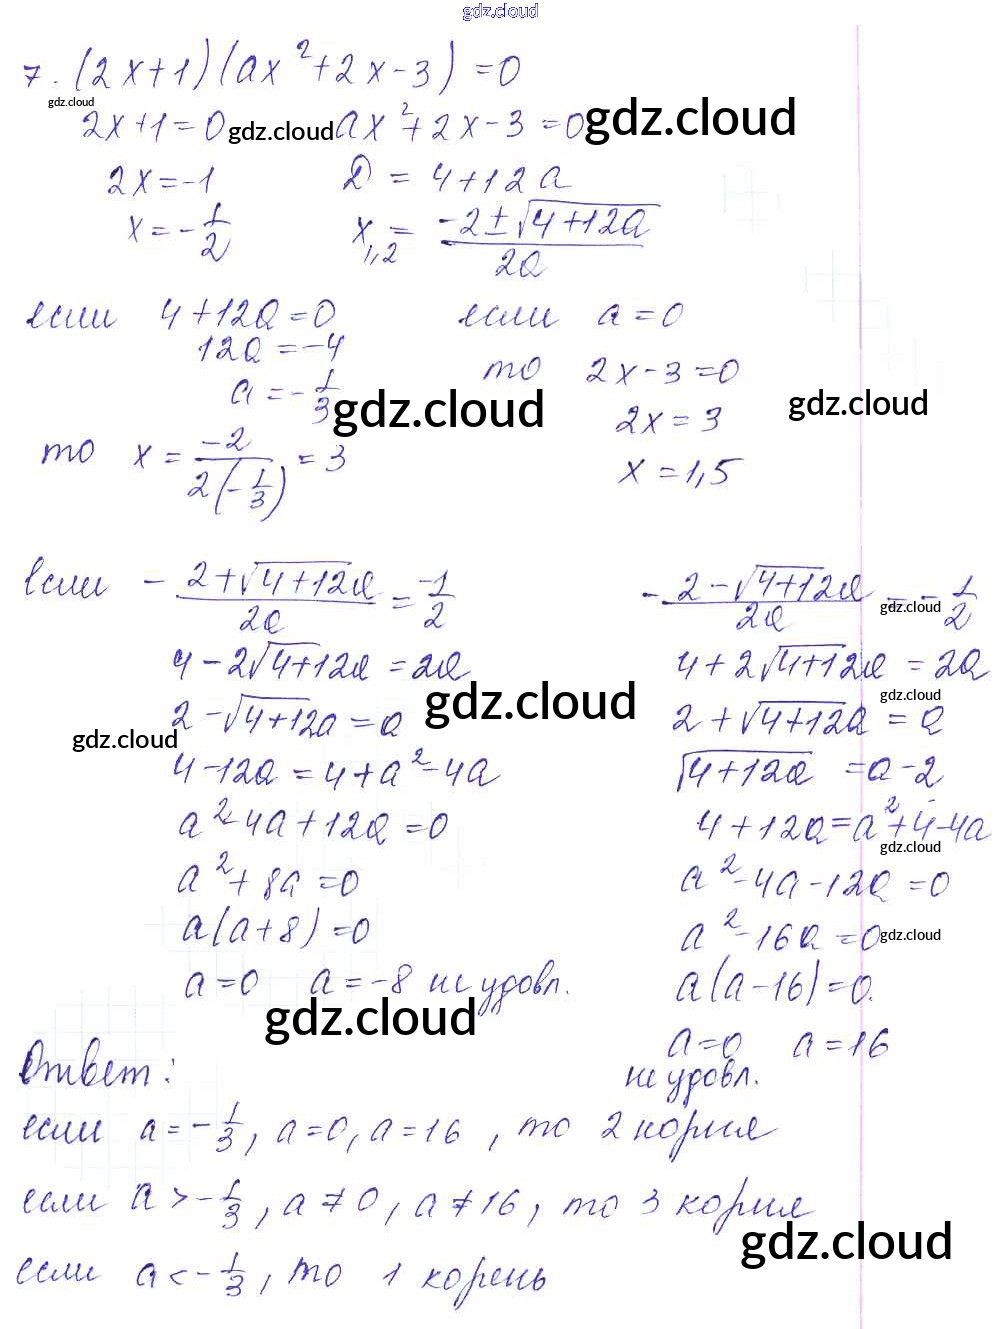 gdz.cloud
7. (2x+1)(ax²+2x-3)=0
gdz.cloud
2x+1=0 gdz.cloud ax²+2x-3=0 gdz.cloud
2x=-1 D = 4+12a
x=-1/2 x1,2 = (-2±√4+12a)/2a
если 4+12a=0 если a=0
12a=-4 то 2x-3=0
a=-1/3 gdz.cloud 2x=3 gdz.cloud
то x = -2/(2(-1/3)) = 3 x=1,5
если - (2+√4+12a)/2a = -1/2 - (2-√4+12a)/2a = -1/2 gdz.cloud
4-2√4+12a=2a 4+2√4+12a=2a
gdz.cloud gdz.cloud
2-√4+12a=a 2+√4+12a=a
gdz.cloud
4-12a=4+a²-4a √4+12a=a-2
a²-4a+12a=0 4+12a=a²+4-4a
gdz.cloud
a²+8a=0 a²-4a-12a=0
a(a+8)=0 a²-16a=0 gdz.cloud
a=0 a=-8 не удовл. a(a-16)=0.
gdz.cloud
a=0 a=16
Ответ: не удовл.
если a=-1/3, a=0, a=16, то 2 корня
если a>-1/3, a≠0, a≠16, то 3 корня
gdz.cloud
если a<-1/3, то 1 корень